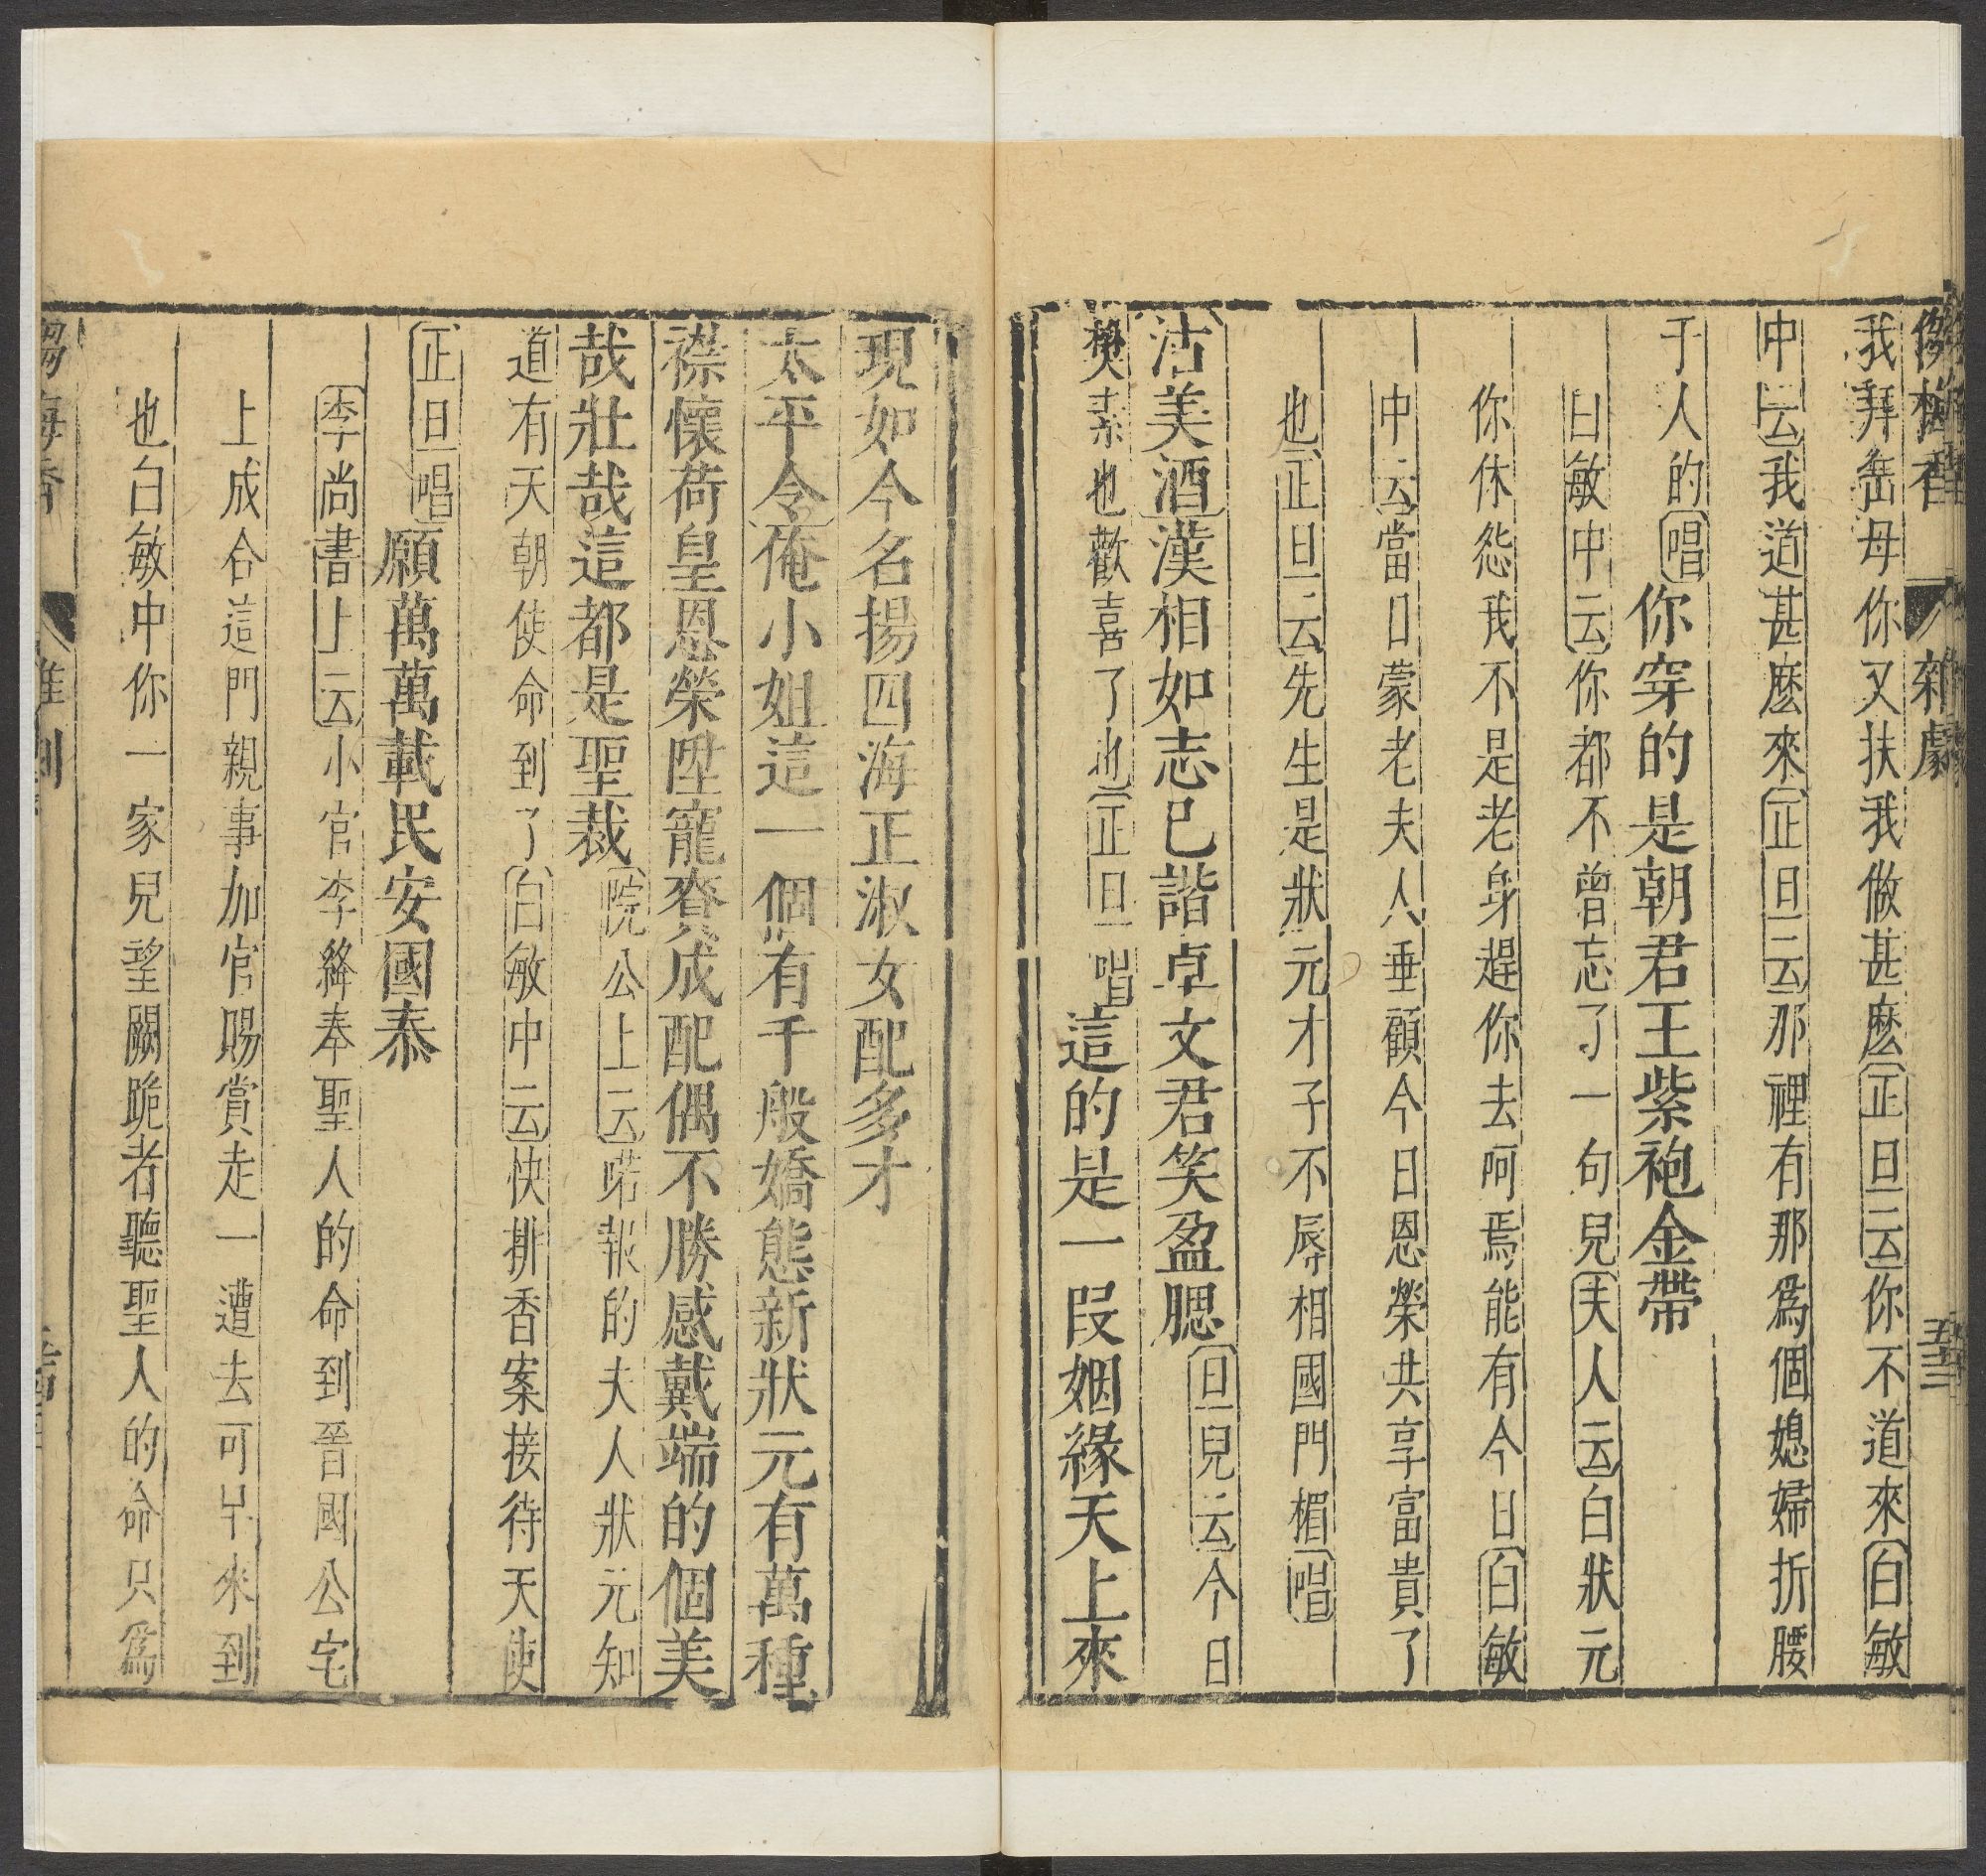 㑳梅香 雜劇 五十二
我拜岳母你又扶我做甚麽正旦云你不道來白敏
中云我道甚麽來正旦云那裡有那爲個媳婦折腰
于人的唱你穿的是朝君王紫袍金帶
白敏中云你都不曾忘了一句兒夫人云白狀元
你休怨我不是老身趕你去呵焉能有今日白敏
中云當日蒙老夫人垂顧今日恩榮共享富貴了
也正旦云先生是狀元才子不辱相國門楣唱
沽美酒漢相如志已諧卓文君笑盈腮旦兒云今日
樊素也歡喜了也正旦唱這的是一段姻緣天上來
現如今名揚四海正淑女配多才
太平令俺小姐這一個有千般嬌態新狀元有萬種
襟懷荷皇恩榮陞寵賚成配偶不勝感戴端的個美
哉壯哉這都是聖裁院公上云喏報的夫人狀元知
道有天朝使命到了白敏中云快排香案接待天使
正旦唱願萬萬載民安國泰
李尚書上云小官李絳奉聖人的命到晉國公宅
上成合這門親事加官賜賞走一遭去可早來到
也白敏中你一家兒望闕跪者聽聖人的命只爲
梅香 雜劇